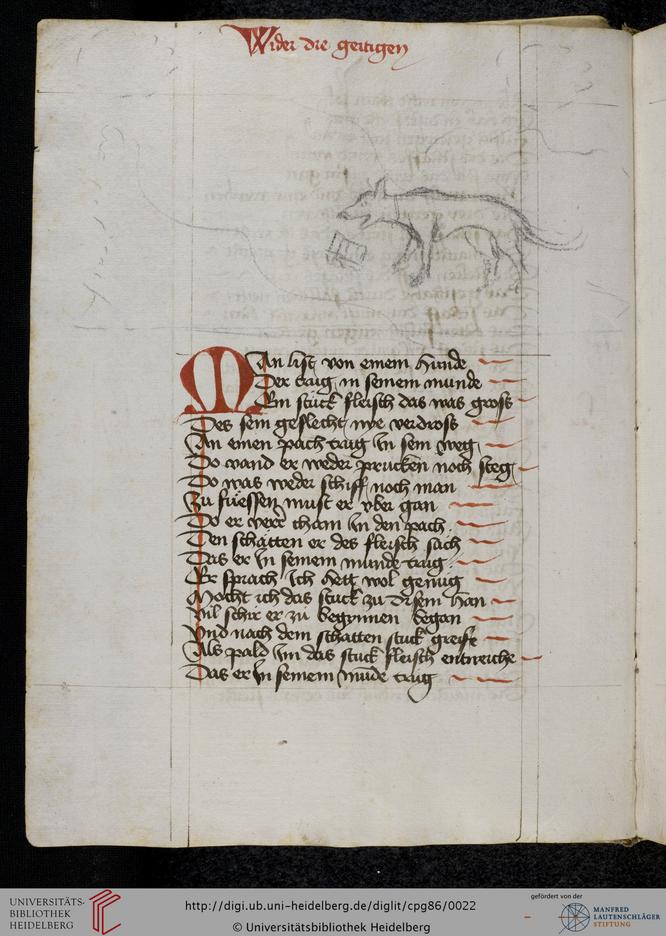 Wider die geitigen
Man list von einem hunde
Der traig in seinem munde
Ein stück fleisch das was gross
Des sein geslecht nye verdross
An einen pach traig in sein weg
Do vand er weder prucken noch steg
Do was weder schiff noch man
Zu fuessen must er vber gan
Do er verr cham in den pach
Den schatten er des fleisch sach
Das er in seinem munde traig
Er sprach ich hett wol genug
Mocht ich das stuck zu disem han
Vil schir er zu begynnen began
Vnd nach dem schatten stuck greife
Als pald im das stuck fleisch entweiche
Das er in seinem mūde traig
UNIVERSITÄTS-
BIBLIOTHEK
HEIDELBERG
http://digi.ub.uni-heidelberg.de/diglit/cpg86/0022
© Universitätsbibliothek Heidelberg
gefördert von der
MANFRED
LAUTENSCHLÄGER
STIFTUNG